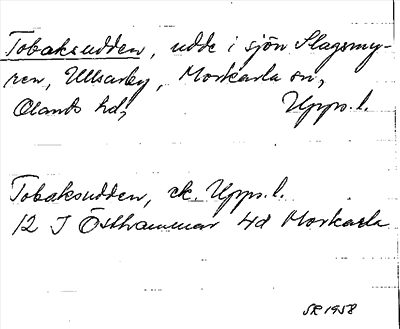 Tobaksudden, udde i sjön Slagsmy-
ren, Ullsarby, Morkarla sn,
Olands hd, Upps. l.
Tobaksudden, ek. Upps. l.
12 I Östhammar 4d Morkarla
SR 1958